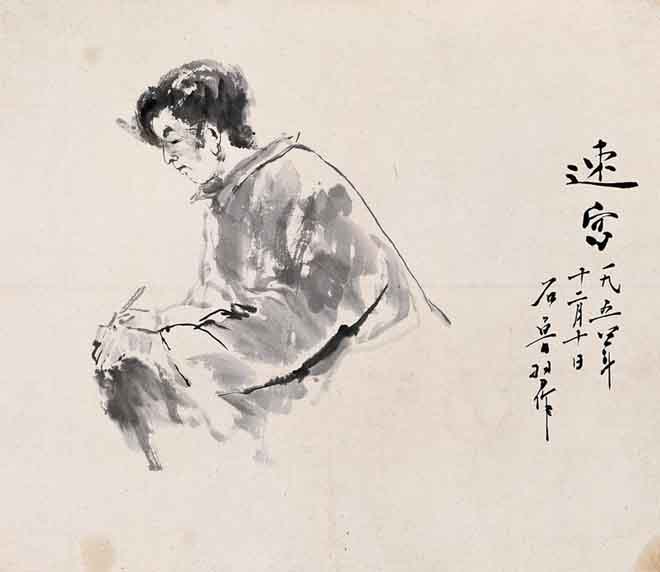 速寫
一九五四年
十二月十日
石魯習作